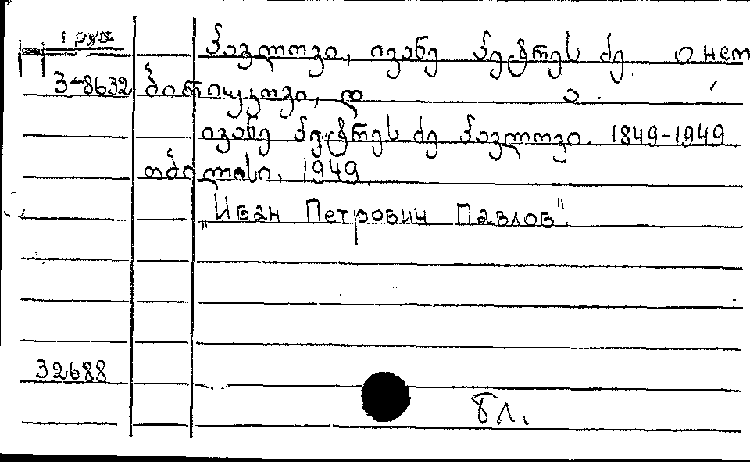 1 груз
პავლოვი, ივანე პეტრეს ძე. О нем
3-8632
ივანე პეტრეს ძე პავლოვი. 1849-1949
თბილისი, 1949
„Иван Петрович Павлов".
32688
Гл.